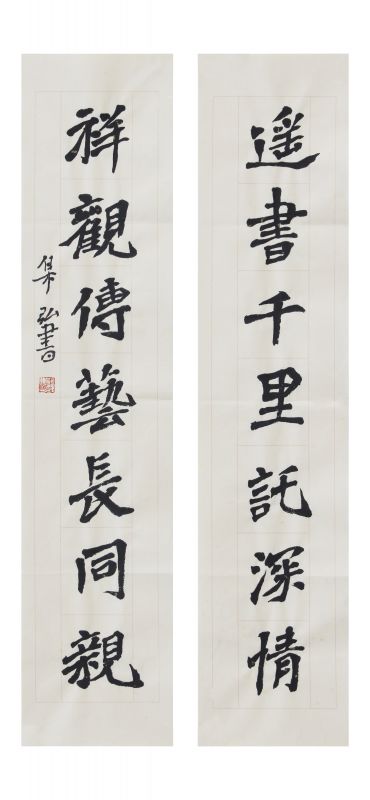 遥書千里託深情
祥觀傳藝長同親
弘書